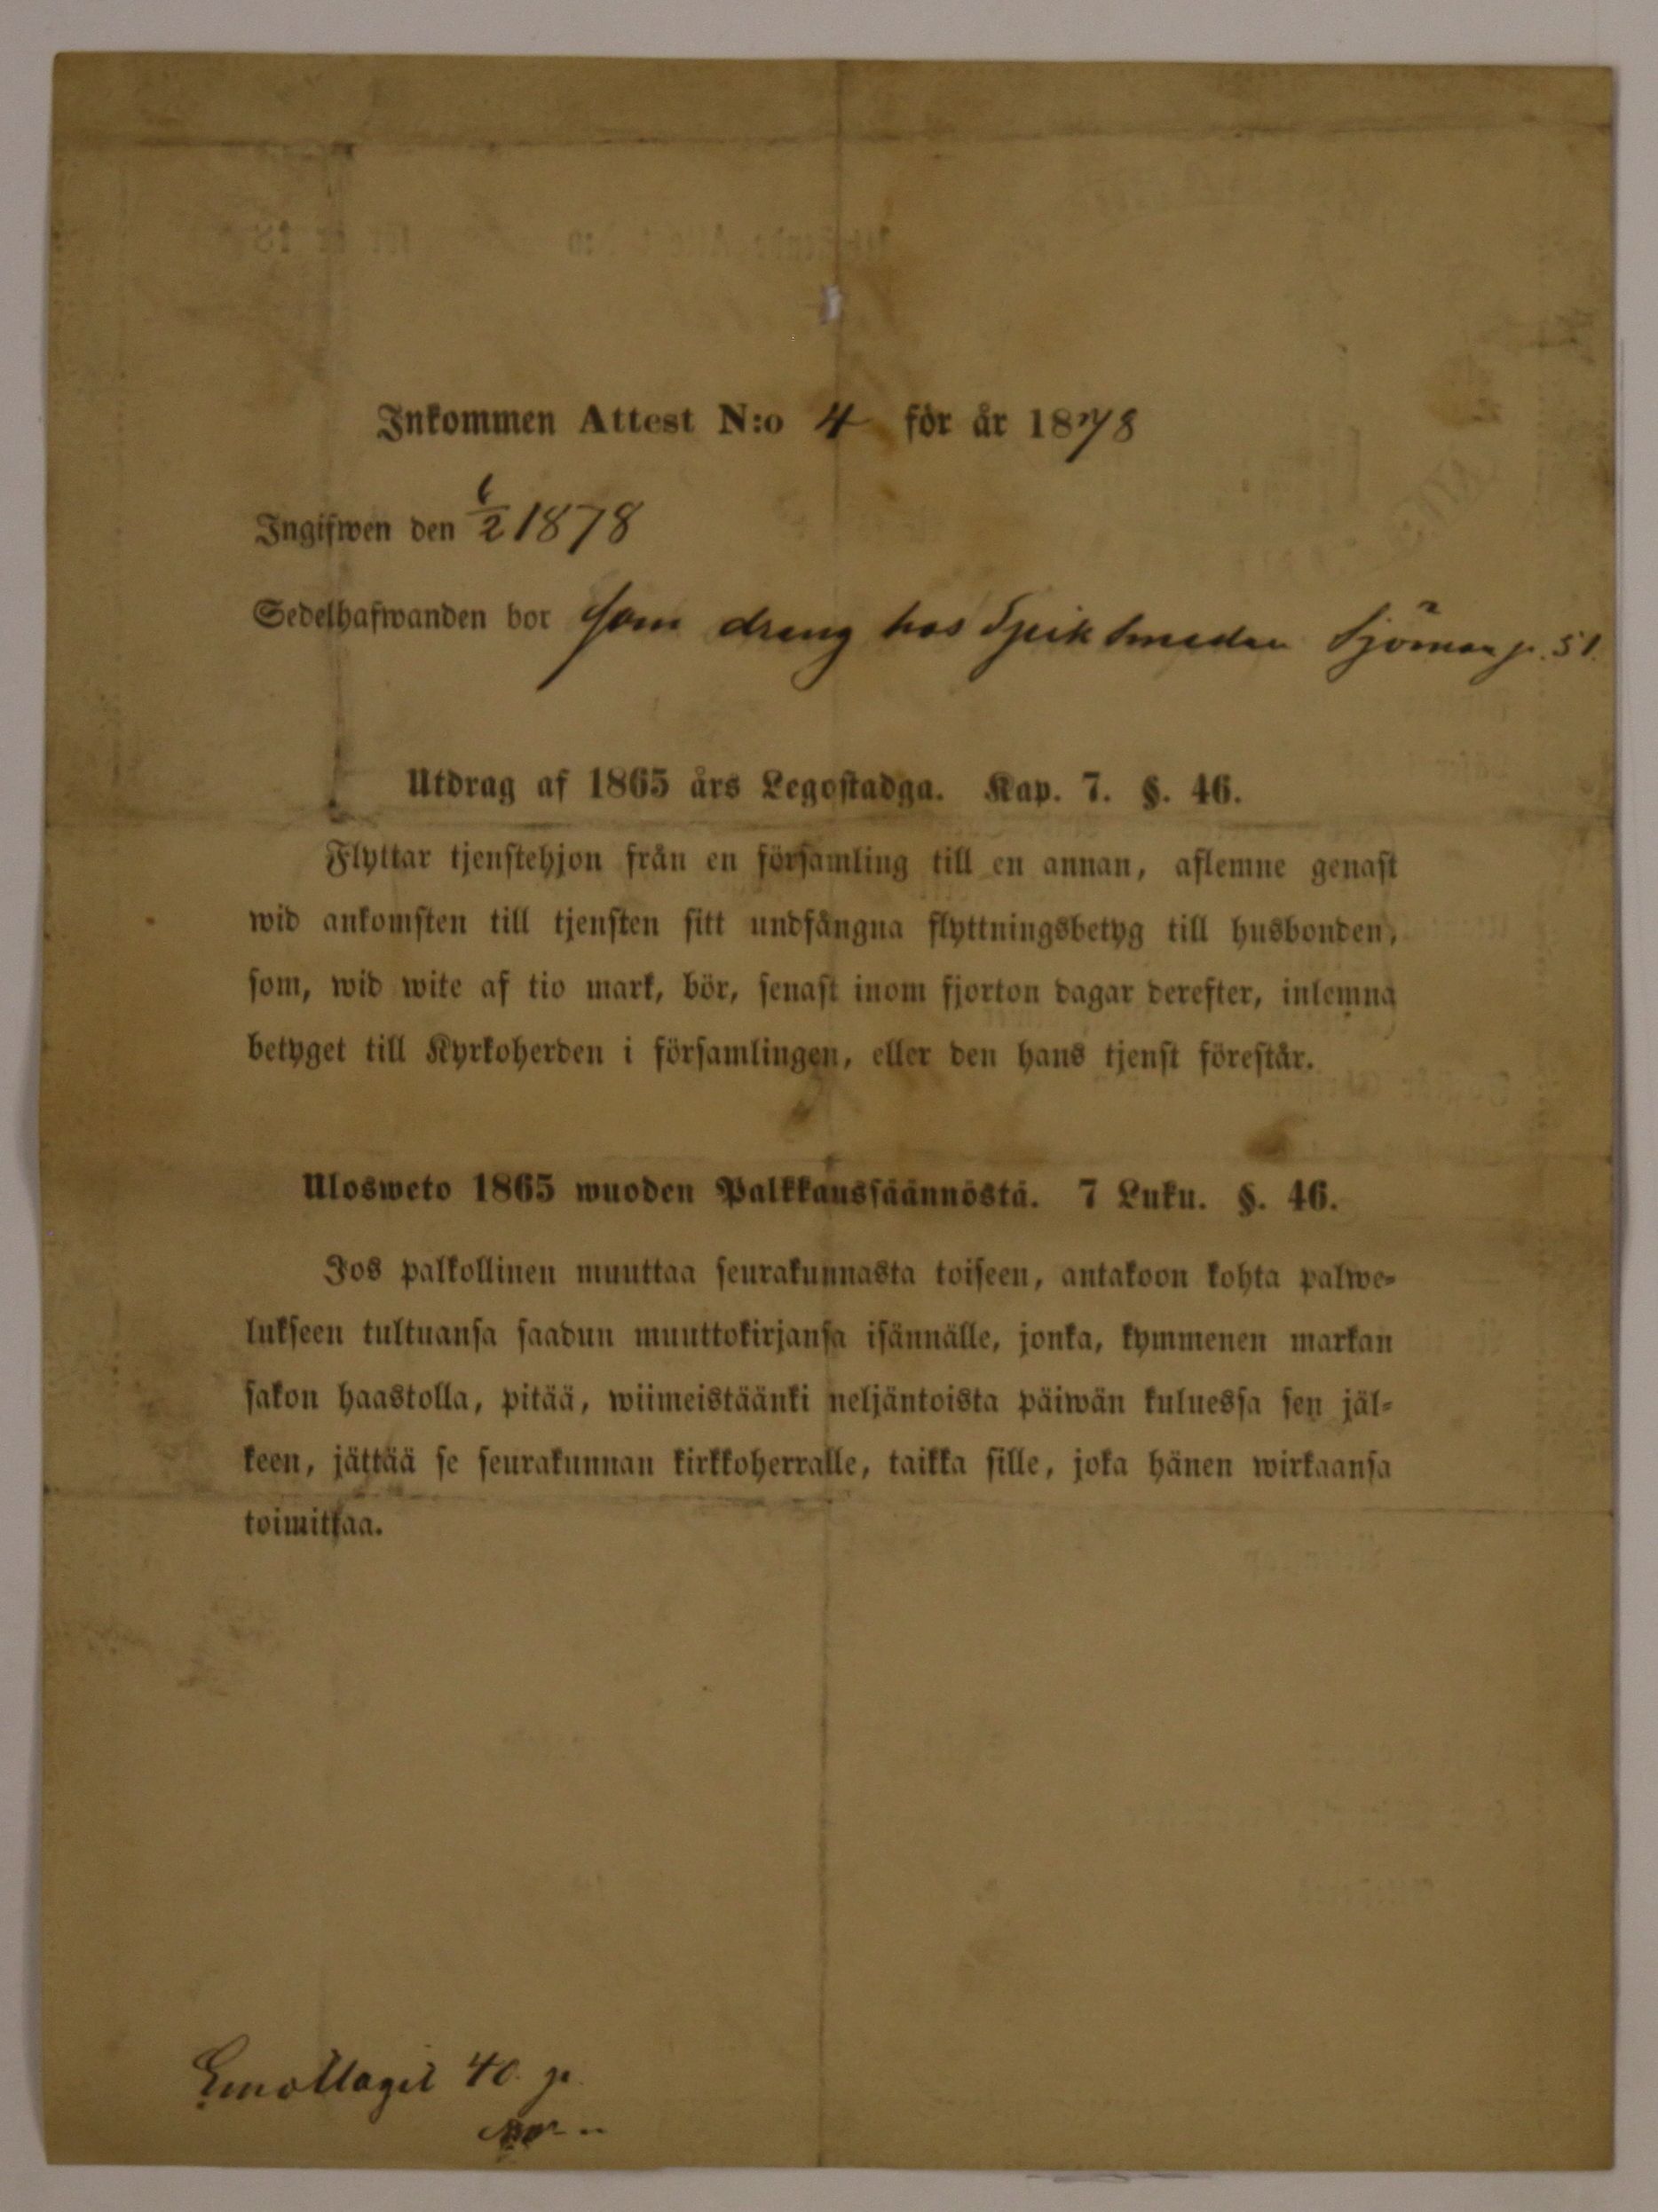 Inkommen Attest N:o 4 för år 1878
Ingifwen den 6/2 1878
Sedelhafwanden bor som dreng hos Spiksmeden Sjöman p. 51.
Utdrag af 1865 års Legostadga. Kap. 7. §. 46.
Flyttar tjenstehjon från en församling till en annan, aflemne genast
wid ankomsten till tjensten sitt undfångna flyttningsbetyg till husbonden,
som, wid wite af tio mark, bör, senast inom fjorton dagar derefter, inlemna
betyget till Kyrkoherden i församlingen, eller den hans tjenst förestår.
Ulosweto 1865 wuoden Palkkaussäännöstä. 7 Luku. §. 46.
Jos palkollinen muuttaa seurakunnasta toiseen, antakoon kohta palwe-
lukseen tultuansa saadun muuttokirjansa isännälle, jonka, kymmenen markan
sakon haastolla, pitää, wiimeistäänki neljäntoista päiwän kuluessa sen jäl-
keen, jättää se seurakunnan kirkkoherralle, taikka sille, joka hänen wirkaansa
toimittaa.
Emottagit 40. p.